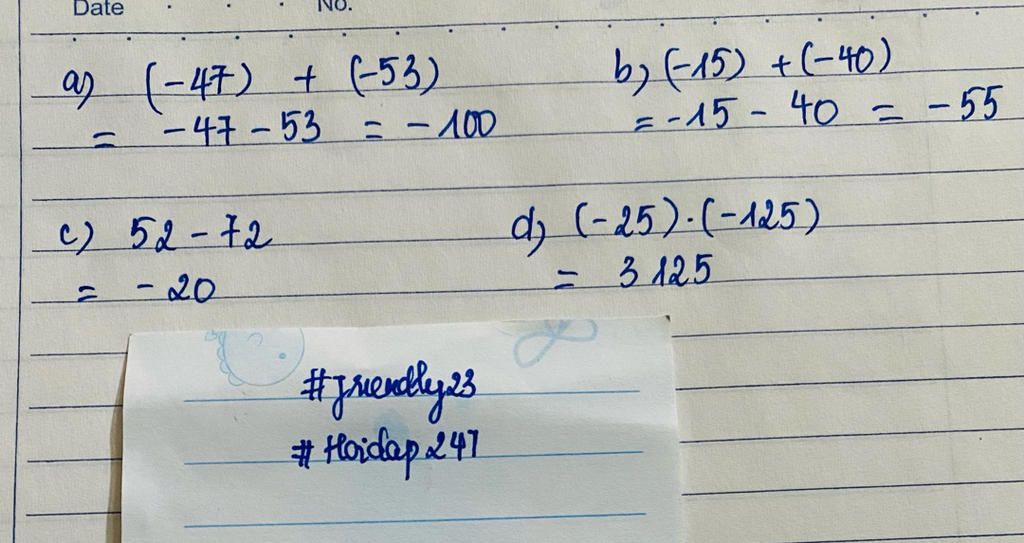 Date No.
a) (-47) + (-53)
= -47 - 53 = -100
b) (-15) + (-40)
= -15 - 40 = -55
c) 52 - 72
= -20
d) (-25) . (-125)
= 3125
#friendly23
#Hoidap247